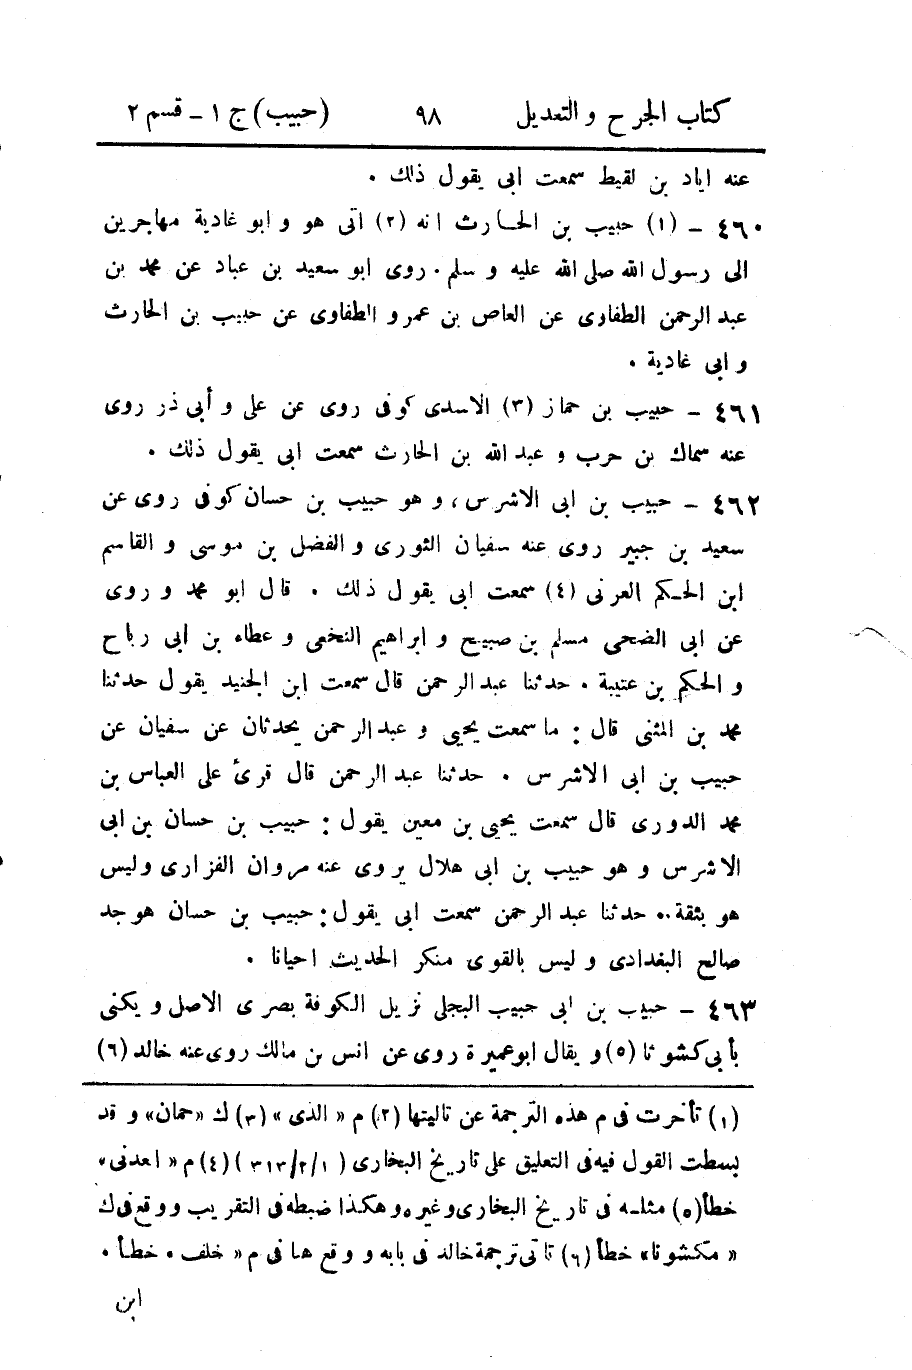 كتاب الجرح والتعديل ٩٨ (حبيب) ج ١ - قسم ٢
عنه اياد بن لقيط سمعت ابى يقول ذلك .
٤٦٠ - (١) حبيب بن الحارث انه (٢) اتى هو و ابو غادية مهاجرين
الى رسول الله صلى الله عليه و سلم . روى ابو سعيد بن عباد عن محمد بن
عبد الرحمن الطفاوى عن العاص بن عمرو الطفاوى عن حبيب بن الحارث
و ابى غادية .
٤٦١ - حبيب بن حماز (٣) الاسدى كوفى روى عن على و أبى ذر روى
عنه سماك بن حرب و عبد الله بن الحارث سمعت ابى يقول ذلك .
٤٦٢ - حبيب بن ابى الاشرس، و هو حبيب بن حسان كوفى روى عن
سعيد بن جبير روى عنه سفيان الثورى و الفضل بن موسى و القاسم
ابن الحكم العرنى (٤) سمعت ابى يقول ذلك . قال ابو محمد و روى
عن ابى الضحى مسلم بن صبيح و ابراهيم النخعى و عطاء بن ابى رباح
و الحكم بن عتيبة . حدثنا عبد الرحمن قال سمعت ابن الجنيد يقول حدثنا
محمد بن المثنى قال : ما سمعت يحيى و عبد الرحمن يحدثان عن سفيان عن
حبيب بن ابى الاشرس . حدثنا عبد الرحمن قال قرئ على العباس بن
محمد الدورى قال سمعت يحيى بن معين يقول : حبيب بن حسان بن ابى
الاشرس و هو حبيب بن ابى هلال يروى عنه مروان الفزارى وليس
هو بثقة . حدثنا عبد الرحمن سمعت ابى يقول : حبيب بن حسان هو جد
صالح البغدادى و ليس بالقوى منكر الحديث احيانا .
٤٦٣ - حبيب بن ابى حبيب البجلى نزيل الكوفة بصرى الاصل و يكنى
بأبى كشوثا (٥) و يقال ابو عميرة روى عن انس بن مالك روى عنه خالد (٦)
(١) تأخرت فى م هذه الترجمة عن تاليتها (٢) م « الذى » (٣) ك «حمان» و قد
بسطت القول فيه فى التعليق على تاريخ البخارى (٣١٣/٢/١) (٤) م « العدنى »
خطأ (٥) مثله فى تاريخ البخارى وغيره و هكذا ضبطه فى التقريب و وقع فى ك
« مكشوثا » خطأ (٦) تاتى ترجمة خالد فى بابه و وقع هنا فى م « خلف » خطأ .
ابن